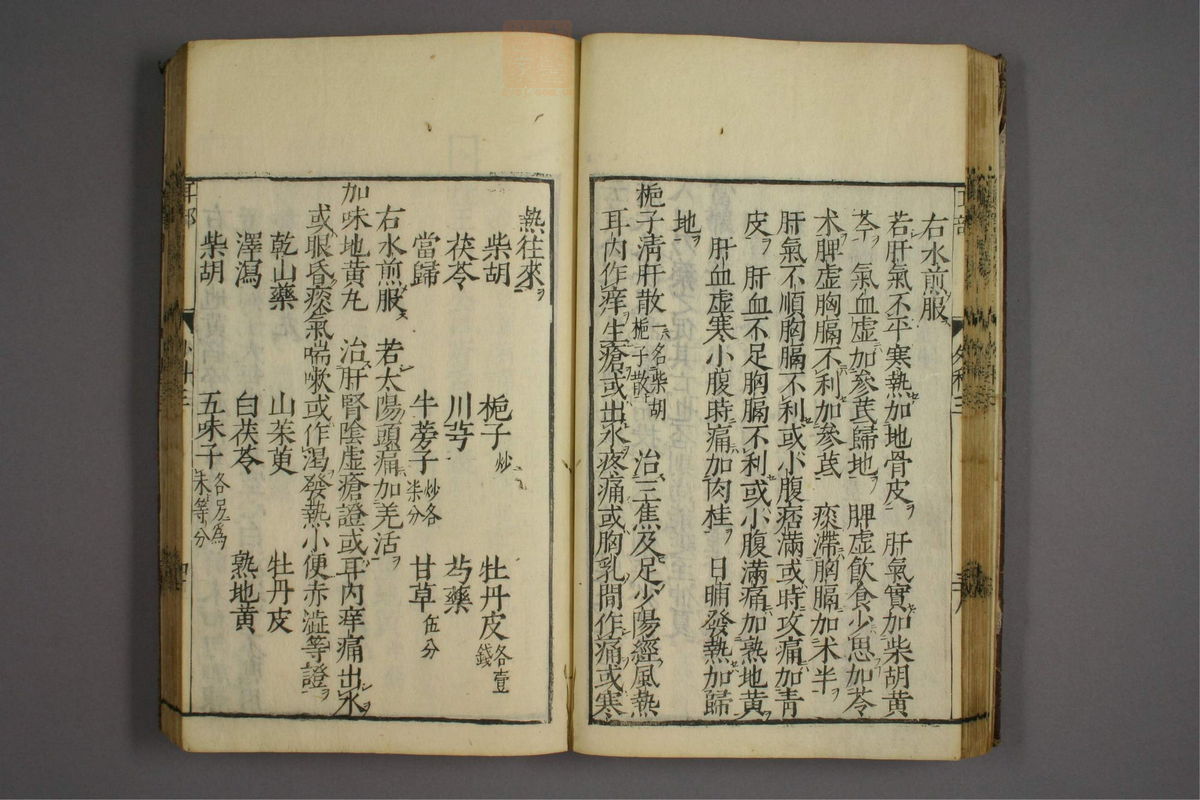 右水煎服
若肝氣不平寒熱加地骨皮 肝氣實加柴胡黃
芩 氣血虛加參芪歸地 脾虛飲食少思加苓
朮脾虛胸膈不利加參芪 痰滯胸膈加朮半
肝氣不順胸膈不利或小腹痞滿或時攻痛加青
皮 肝血不足胸膈不利或小腹滿痛加熟地黃
肝血虛寒小腹時痛加肉桂 日晡發熱加歸
地
梔子清肝散一名柴胡梔子散 治三焦及足少陽經風熱
耳內作痒生瘡或出水疼痛或胸乳間作痛或寒
熱往來
柴胡 梔子炒 牡丹皮各壹錢
茯苓 川芎 芍藥
當歸 牛蒡子炒各柒分 甘草伍分
右水煎服 若太陽頭痛加羌活
加味地黃丸 治肝腎陰虛瘡證或耳內痒痛出水
或眼昏痰氣喘嗽或作渴發熱小便赤澁等證
乾山藥 山茱萸 牡丹皮
澤瀉 白茯苓 熟地黃
柴胡 五味子各另為末等分
耳部